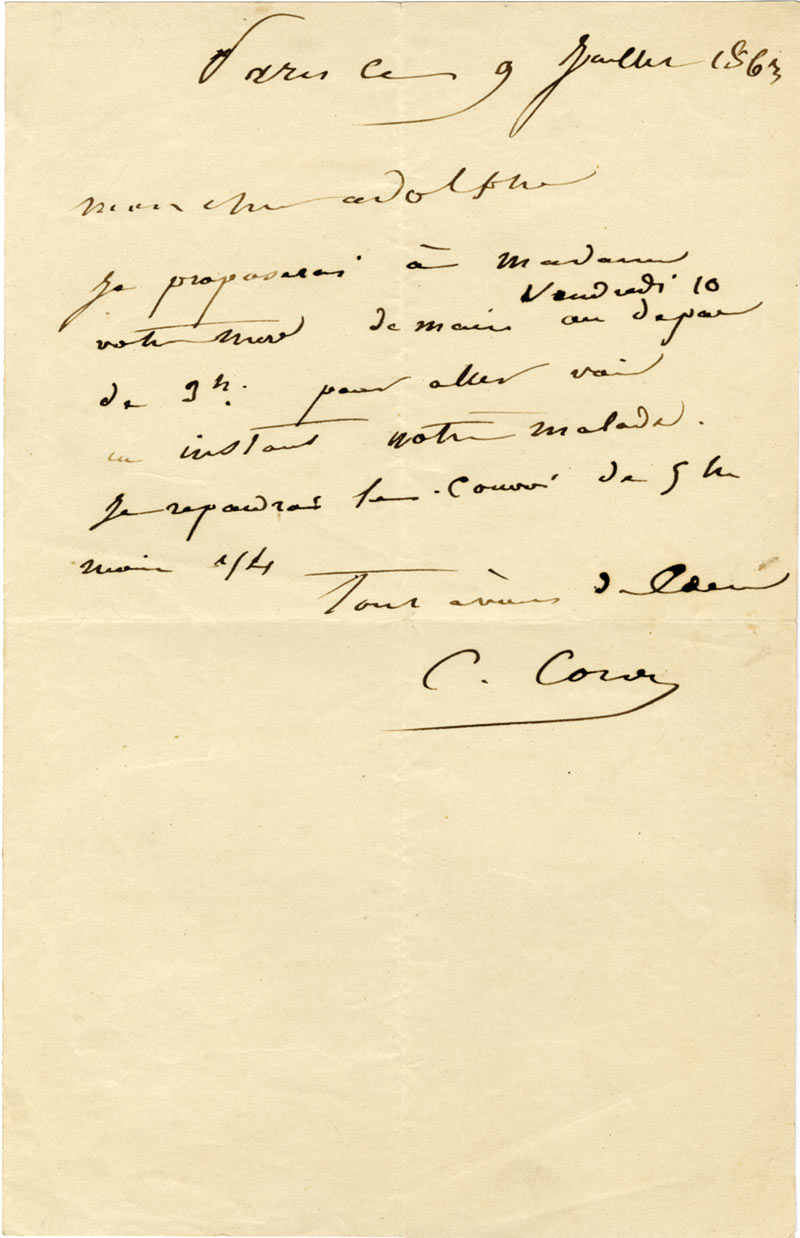 Paris ce 9 Juillet 1863
mon cher adolphe
Je proposerai à madame
votre mere demain Vendredi 10 au depar
de 9h. pour aller voir
un instant notre malade.
Je repandrai le Convoi de 5 h
moin 1/4
Tout à vous de Coeur
C. Corot